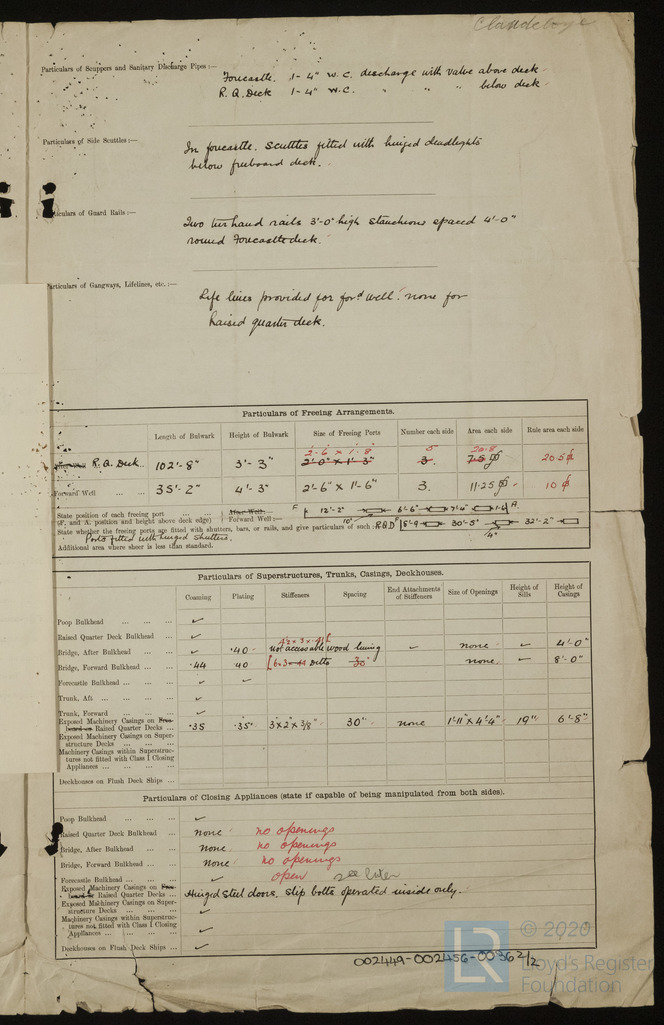 Clandeboye
Particulars of Scuppers and Sanitary Discharge Pipes :—
Forecastle. 1-4" W.C. discharge with valve above deck
R.Q.Deck 1-4" W.C. " " " below deck
Particulars of Side Scuttles :—
In forecastle. Scuttles fitted with hinged deadlights
below freeboard deck.
ticulars of Guard Rails :—
Two tier hand rails 3'-0" high stanchions spaced 4'-0"
round Forecastle deck.
articulars of Gangways, Lifelines, etc. :—
Life lines provided for ford well. none for
Raised quarter deck.
Particulars of Freeing Arrangements.
Length of Bulwark Height of Bulwark Size of Freeing Ports Number each side Area each side Rule area each side
2-6 x 1.8 5 20.8
R.Q. Deck 102'-8" 3'-3" 2'-0" x 1'-3" 3. 7.5 20.5
Forward Well ... ... 35'-2" 4'-3" 2'-6" x 1'-6" 3. 11.25 10
State position of each freeing port ... ... After Well:— F 12'-2" 6'-6" 7'-4" 1-6 A.
(F. and A. position and height above deck edge) Forward Well :— 10"
State whether the freeing ports are fitted with shutters, bars, or rails, and give particulars of such :— R.Q.D F 8'-9 30'-5" 32'-2"
Ports fitted with hinged shutters. 4"
Additional area where sheer is less than standard.
Particulars of Superstructures, Trunks, Casings, Deckhouses.
Coaming Plating Stiffeners Spacing End Attachments of Stiffeners Size of Openings Height of Sills Height of Casings
Poop Bulkhead ... ... ... ✓
Raised Quarter Deck Bulkhead ... ✓
Bridge, After Bulkhead ... ... ✓ .40 not accessable wood lining ✓ none ✓ 4'-0"
Bridge, Forward Bulkhead ... ... .44 .40 6 x 3 x .44 ditto 30" none ✓ 8'-0"
Forecastle Bulkhead ... ... ... ✓ ✓
Trunk, Aft ... ... ... ✓
Trunk, Forward ... ... ... ✓
Exposed Machinery Casings on Free-
board or Raised Quarter Decks ... .35 .35 3"x2"x3/8" 30" none 1'-11" x 4'-4" 19" 6'-8"
Exposed Machinery Casings on Super-
structure Decks ... ... ...
Machinery Casings within Superstruc-
tures not fitted with Class I Closing
Appliances ... ... ... ...
Deckhouses on Flush Deck Ships ...
Particulars of Closing Appliances (state if capable of being manipulated from both sides).
Poop Bulkhead ... ... ... ✓
Raised Quarter Deck Bulkhead ... none no openings
Bridge, After Bulkhead ... ... none no openings
Bridge, Forward Bulkhead ... ... none no openings
Forecastle Bulkhead ... ... ... ✓ open see later
Exposed Machinery Casings on Free-
board or Raised Quarter Decks ... Hinged steel doors, slip bolts operated inside only.
Exposed Machinery Casings on Super-
structure Decks ... ... ... ✓
Machinery Casings within Superstruc-
tures not fitted with Class I Closing
Appliances ... ... ... ... ✓
Deckhouses on Flush Deck Ships ... ✓
© 2020
LR Lloyd's Register
Foundation
002449-002456-0036 2/2